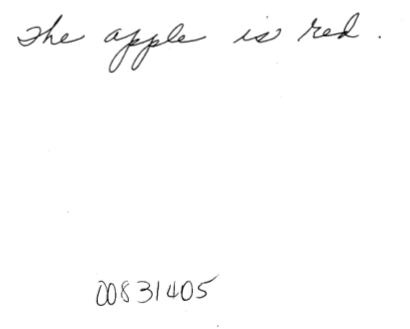 The apple is red.
00831405